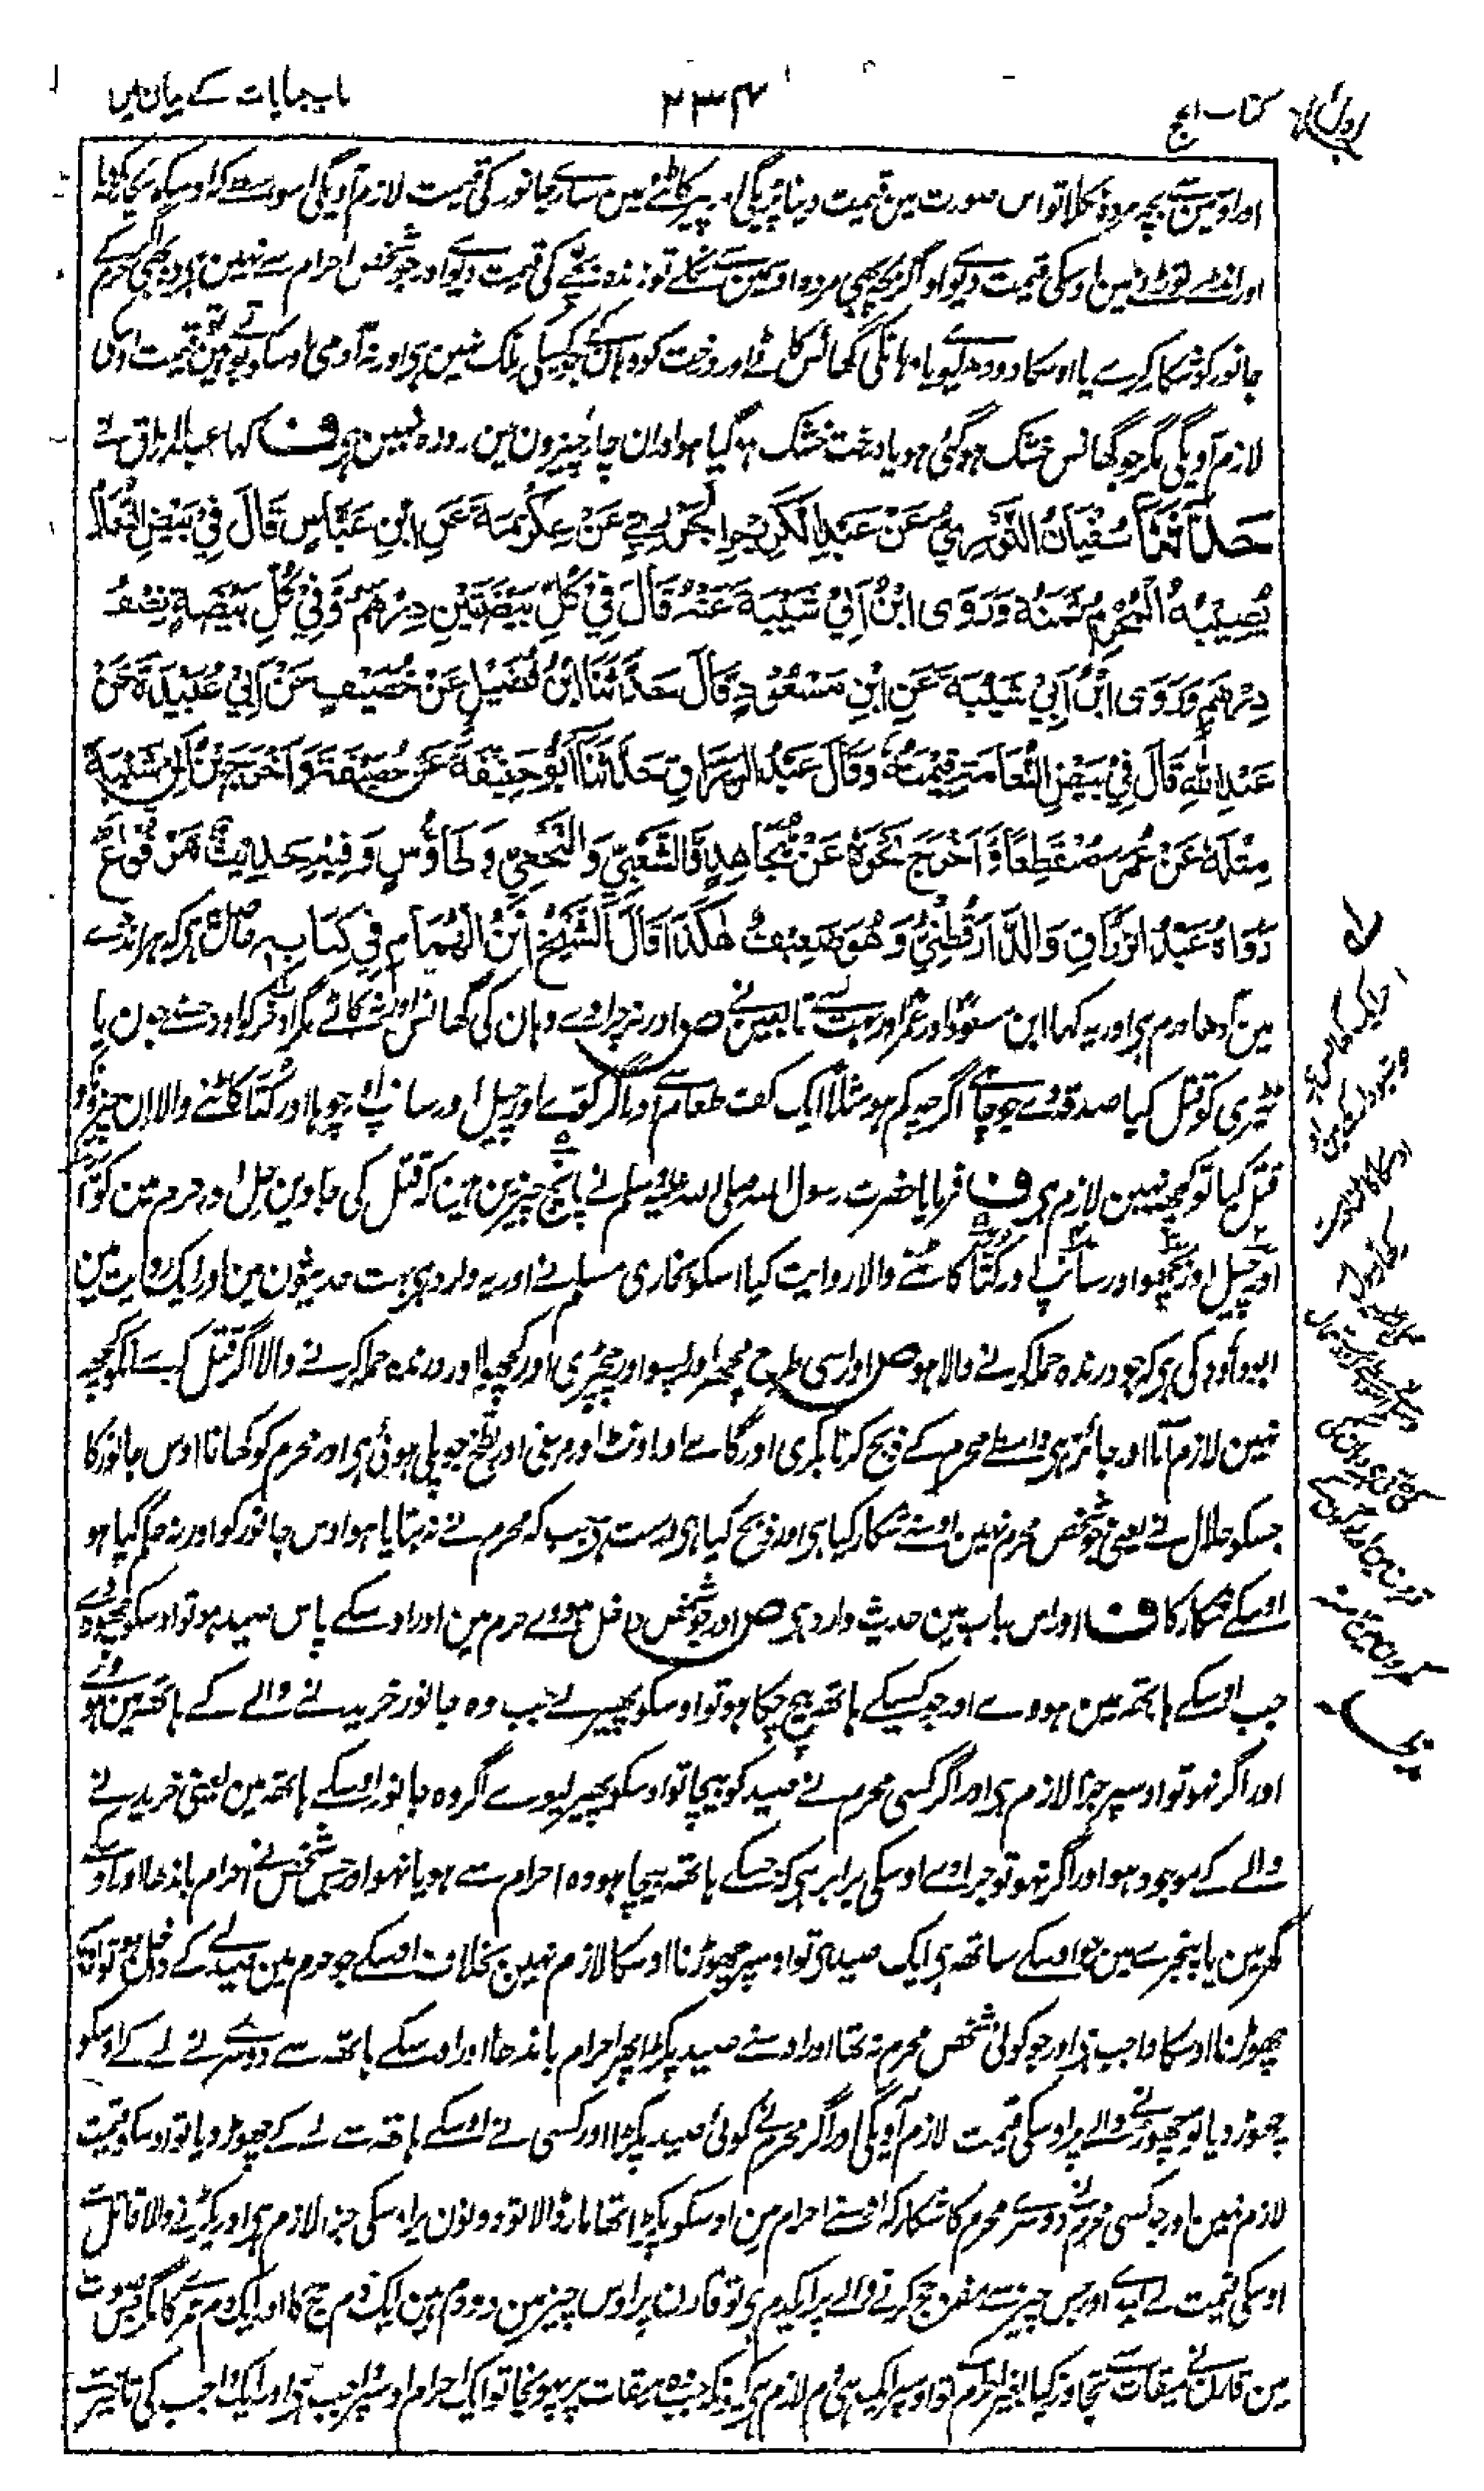 کتاب الحج
۲۳۴
باب جنایات کے بیان میں
اور اوسمین سے بچہ مردہ نکلا تو اس صورت مین قیمت دینا پڑیگی اور پیر کاٹنے مین سارے جانور کی قیمت لازم آویگی اسواسطے کہ اوسکو
اور انڈے توڑنے مین اوسکی قیمت دیوے اور اگر بچہ بھی مردہ اوسمین سے نکلے تو زندہ بچے کی قیمت دیوے اور جو شخص احرام سے نہین ہی وہ بھی اگر حرم کے
جانور کو شکار کرے یا اوسکا دودھ دوہے یا وہانکی گھانس کاٹے اور درخت کو وہان کے جو کسیکی ملک نہین ہی اور نہ آدمی اوسکو بوتے ہین تو قیمت اوسکی
لازم آویگی مگر جو گھانس خشک ہوگئی ہو یا درخت خشک ہو گیا ہو اور ان چار چیزون مین روزہ نہین ہی ف کہا عبدالرزاق نے
حَدَّثَنَا سُفْيَانُ الثَّوْرِيُّ عَنْ عَبْدِ الْكَرِيْمِ الْجَزَرِيِّ عَنْ عِكْرِمَةَ عَنِ ابْنِ عَبَّاسٍ قَالَ فِيْ بَيْضِ النَّعَامِ
يُصِيْبُهُ الْمُحْرِمُ ثَمَنُهُ وَرَوَى ابْنُ اَبِيْ شَيْبَةَ عَنْهُ قَالَ فِيْ كُلِّ بَيْضَتَيْنِ دِرْهَمٌ وَفِيْ كُلِّ بَيْضَةٍ نِصْفُ
دِرْهَمٍ وَرَوَى ابْنُ اَبِيْ شَيْبَةَ عَنِ ابْنِ مَسْعُوْدٍ قَالَ حَدَّثَنَا ابْنُ فُضَيْلٍ عَنْ خُصَيْفٍ عَنْ اَبِيْ عُبَيْدَةَ عَنْ
عَبْدِ اللهِ قَالَ فِيْ بَيْضِ النَّعَامَةِ قِيْمَتُهُ وَقَالَ عَبْدُ الرَّزَّاقِ حَدَّثَنَا اَبُوْ حَنِيْفَةَ عَنْ خُصَيْفَةَ وَاَخْرَجَ ابْنُ اَبِيْ شَيْبَةَ
مِثْلَهُ عَنْ عُمَرَ مُنْقَطِعًا وَاَخْرَجَ نَحْوَهُ عَنْ مُجَاهِدٍ وَالشَّعْبِيِّ وَالنَّخَعِيِّ وَطَاؤُسٍ وَفِيْهِ حَدِيْثٌ مَرْفُوْعٌ
رَوَاهُ عَبْدُ الرَّزَّاقِ وَالدَّارَقُطْنِيُّ وَهُوَ ضَعِيْفٌ هٰكَذَا قَالَ الشَّيْخُ ابْنُ الْهُمَامِ فِيْ كِتَابِهِ حاصل یہ ہی کہ ہر انڈے
مین آدھا درم ہی اور یہ کہا ابن مسعودؓ اور عمرؓ اور بہت سے تابعین نے ص اور نہ چراوے وہان کی گھانس اور نہ کاٹے مگر اذخر کو اور جسنے جون یا
ٹڈیری کو قتل کیا صدقہ دے جو چاہے اگرچہ کم ہو مثلاً ایک کف طعام سے اور اگر کوے اور چیل اور سانپ اور چوہا اور کتا کاٹنے والا ان چیزونکو
قتل کیا تو کچھ نہین لازم ہی ف فرمایا حضرت رسول اللہ صلی اللہ علیہ وسلم نے پانچ چیزین ہین کہ قتل کی جاوین حل اور حرم مین کوّا
اور چیل اور بچھو اور سانپ اور کتّا کاٹنے والا روایت کیا اسکو بخاری مسلم نے اور یہ وارد ہی بہت حدیثون مین اور ایک روایت مین
ابو داؤد کی ہی کہ جو درندہ حملہ کرنے والا ہو ص اور اسی طرح مچھر اور پسو اور چچڑی اور کچھوا اور درندہ حملہ کرنے والا اگر قتل کرے انکو کچھ
نہین لازم آتا اور جائز ہی واسطے محرم کے ذبح کرنا بکری اور گائے اور اونٹ اور مرغی اور بطخ جو پلی ہوئی ہی اور محرم کو کھانا اوس جانور کا
جسکو حلال نے یعنی جو شخص محرم نہین اوسنے شکار کیا ہی اور ذبح کیا ہی درست ہی جب کہ محرم نے نہ بتایا ہو اوس جانور کو اور نہ حکم کیا ہو
اوسکے شکار کا ف اور اس باب مین حدیث وارد ہی ص اور جو شخص داخل ہووے حرم مین اور اوسکے پاس صید ہو تو اوسکو چھوڑ دے
جب اوسکے ہاتھ مین ہووے اور جو کسیکے ہاتھ بیچ چکا ہو تو اوسکو پھیر لے جب وہ جانور خریدنے والے کے ہاتھ مین ہو
اور اگر نہو تو اوسپر جزا لازم ہی اور اگر کسی محرم نے صید کو بیچا تو اوسکو پھیر لیوے اگر وہ جانور اوسکے ہاتھ مین یعنی خریدنے
والے کے موجود ہو اور اگر نہو تو جزا دے اوسکی برابر ہی کہ جسکے ہاتھ بیچا ہو وہ احرام سے ہو یا نہو اور جس شخص نے احرام باندھا اور اوسکے
گھر مین یا پنجرے مین جو اوسکے ساتھ ہی ایک صید ہی تو اوسپر چھوڑنا اوسکا لازم نہین بخلاف اوسکے جو حرم مین صید لے کے داخل ہو تو اوسپر
چھوڑنا اوسکا واجب ہی اور جو کوئی شخص محرم نہ تھا اور اوسنے صید پکڑا پھر احرام باندھا اور اوسکے ہاتھ سے دوسرے نے لے کے اوسکو
چھوڑ دیا تو چھوڑنے والے پر اوسکی قیمت لازم آویگی اور اگر محرم نے کوئی صید پکڑا اور کسی نے اوسکے ہاتھ سے لے کے چھوڑ دیا تو اوسکو قیمت
لازم نہین اور جو کسی محرم نے دوسرے محرم کا شکار کہ اوسنے احرام مین اوسکو پکڑا تھا مار ڈالا تو دونون پر اوسکی جزا لازم ہی اور پکڑنے والا قاتل سے
اوسکی قیمت لے لیوے اور جس چیز سے مفرد حج کرنے والے پر ایک دم ہی تو قارن پر اوس چیز مین دو دم ہین ایک دم حج کا اور ایک دم عمرے کا مگر جس صورت
مین قارن نے میقات سے تجاوز کیا بغیر احرام کے تو اوسپر ایک ہی دم لازم ہی کیونکہ جب وہ میقات پر پہونچا تو ایک احرام اوسپر واجب ہی اور ایک واجب کی تاخیر سے